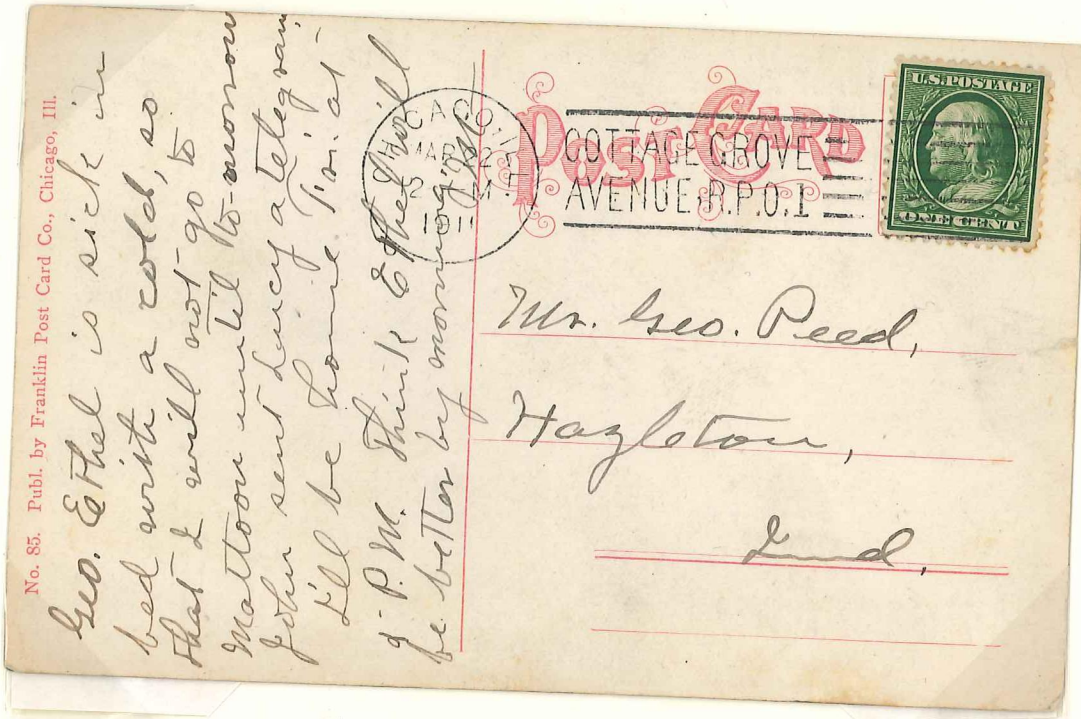 No. 85. Publ. by Franklin Post Card Co., Chicago, Ill.
Geo. Ethel is sick in
bed with a cold, so
that I will not go to
Mattoon until to-morrow
John sent Lucy a telegram
I'll be home Fri. at
P.M. Think Ethel will
be better by morning.
POST CARD
CHICAGO, ILL.
MAR 2
M
1911
COTTAGE GROVE
AVENUE. R.P.O. 1
U.S. POSTAGE
ONE CENT
Mr. Geo. Reed,
Hazleton,
Ind,